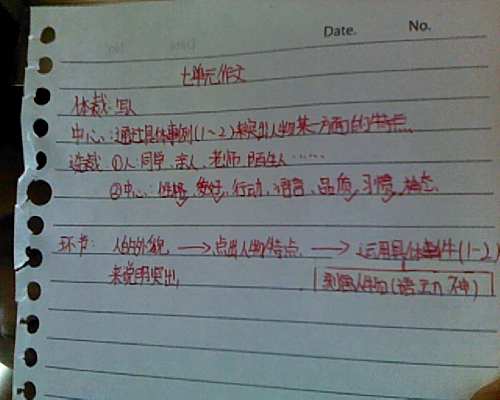 Date. No.
七单元作文
体裁:写人
中心:通过具体事例(1~2)来突出人物某一方面的特点.
选裁 ①人:同学、亲人、老师、陌生人……
②中心:性格、爱好、行动、语言、品质、习惯、
环节: 人的外貌 → 点出人物特点 → 运用具体事件(1~2)
来说明突出 人物(语、动、神)